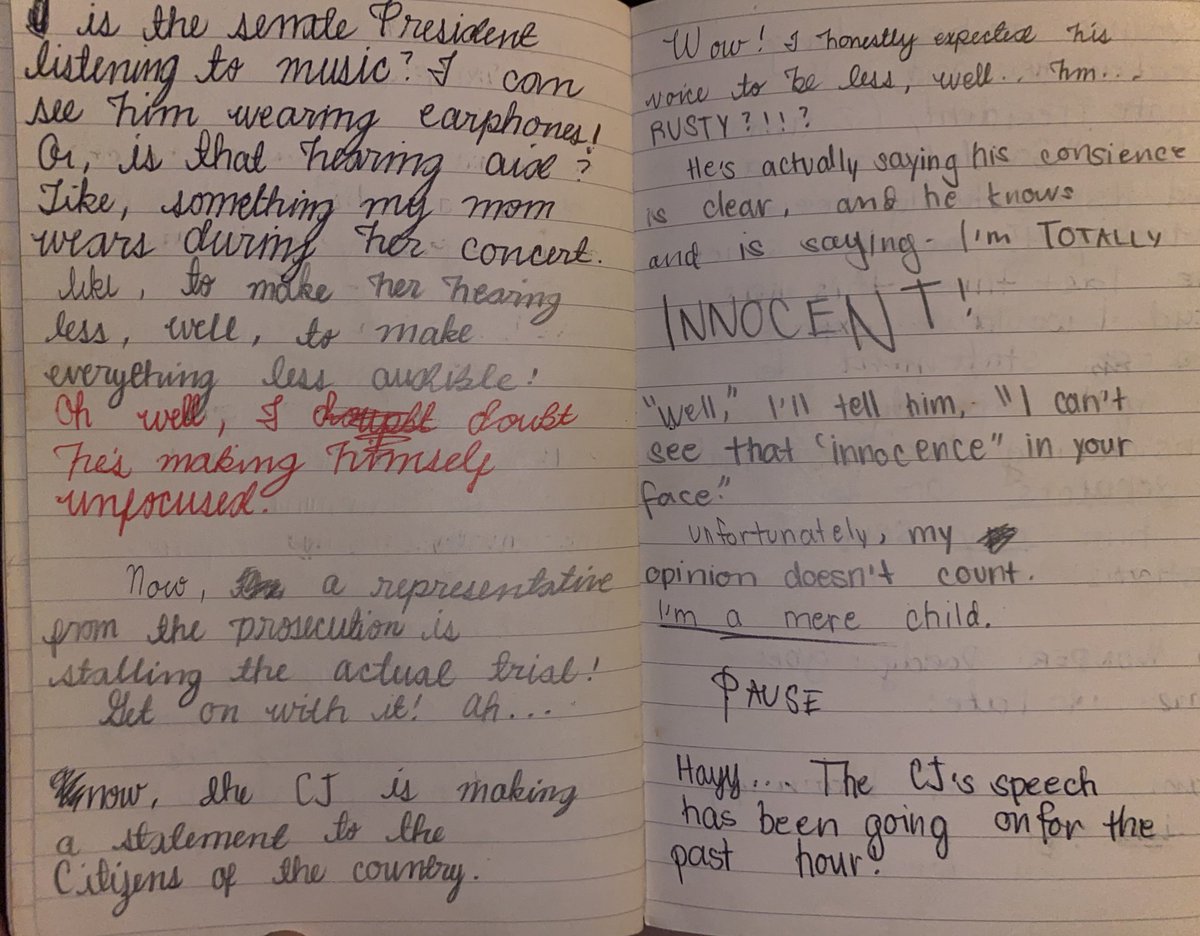 is the senate President
listening to music? I can
see him wearing earphones!
Or, is that hearing aide?
Like, something my mom
wears during her concert.
like, to make her hearing
less, well, to make
everything less audible!
Oh well, I doubt
he's making himself
unfocused.
Now, a representative
from the prosecution is
stalling the actual trial!
Get on with it! Ah....
now, the CJ is making
a statement to the
Citizens of the country.
Wow! I honestly expected his
voice to be less, well.. hm...
RUSTY?!!?
He's actually saying his consience
is clear, and he knows
and is saying- I'm TOTALLY
INNOCENT!
"Well," I'll tell him, "I can't
see that "innocence" in your
face."
Unfortunately, my
opinion doesn't count.
I'm a mere child.
PAUSE
Hayy.... The CJ's speech
has been going on for the
past hour!